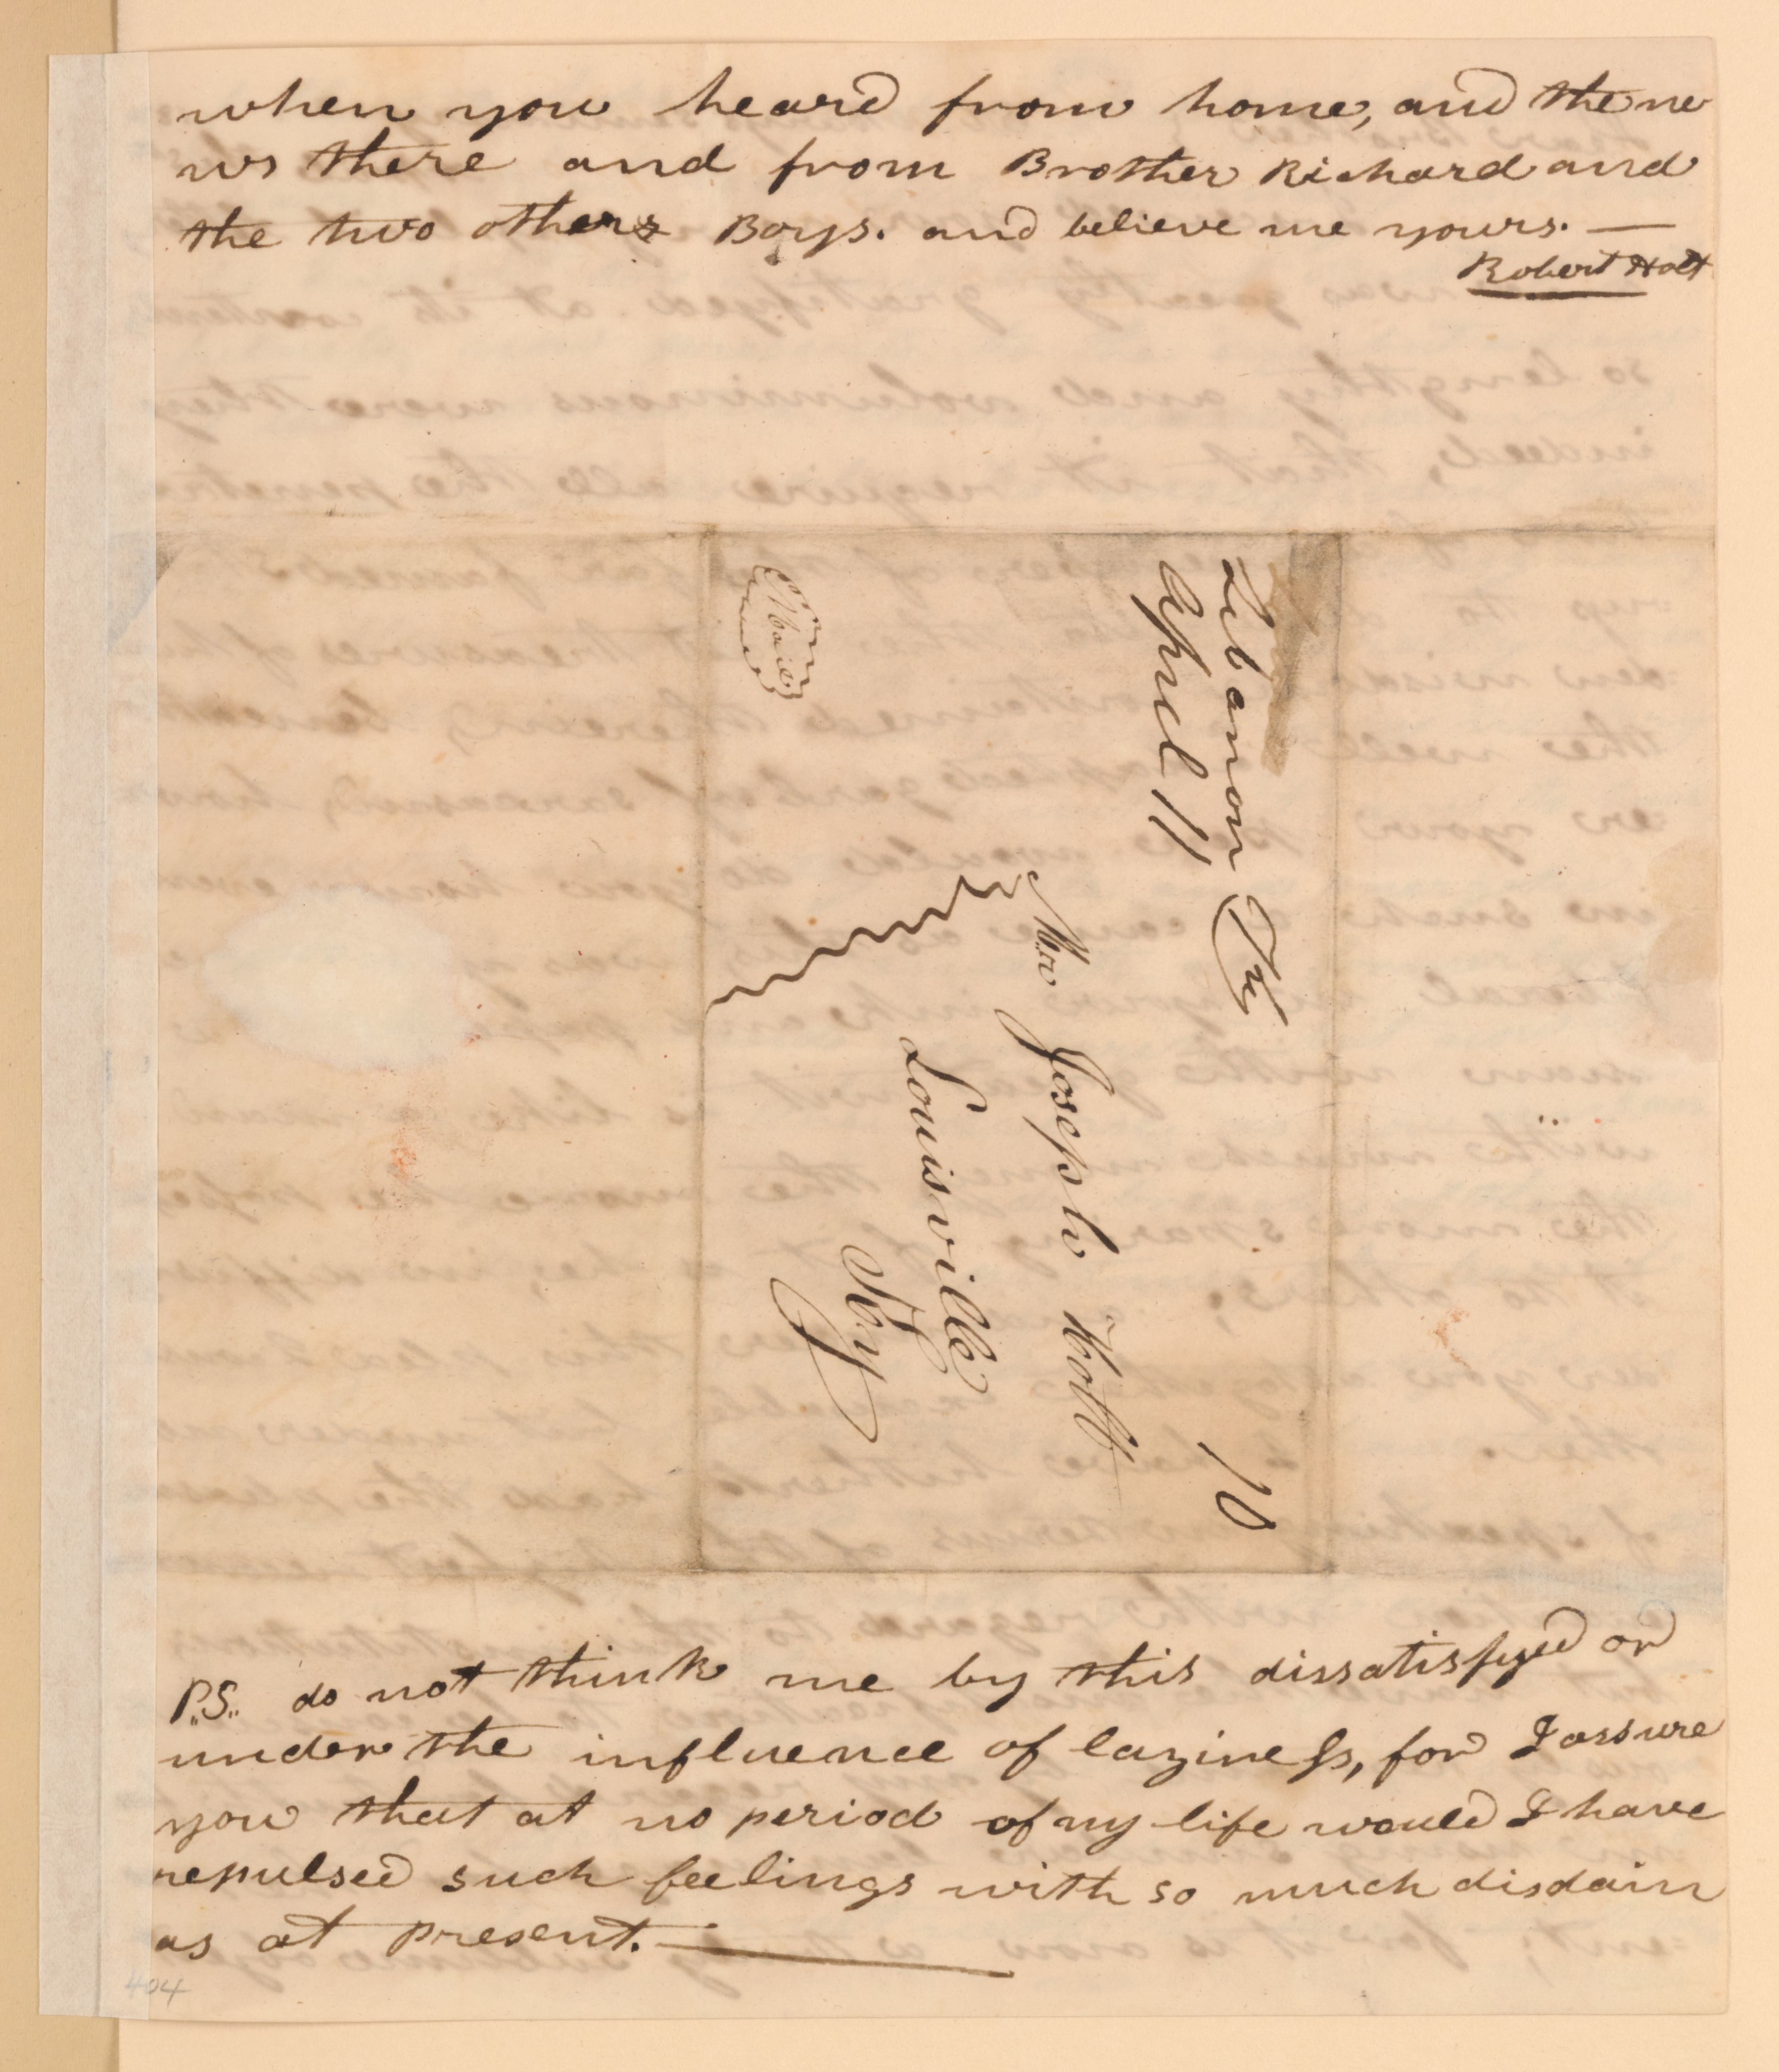 when you heard from home, and the ne
ws there and from Brother Richard and
the two others Boys. and believe me yours. —
Robert Holt
Lebanon Ky
April 11
10
Mr Joseph Holt
Louisville
Ky
P.S. do not think me by this dissatisfyed or
under the influence of laziness, for I assure
you that at no period of my life would I have
repulsed such feelings with so much disdain
as at present. —
404